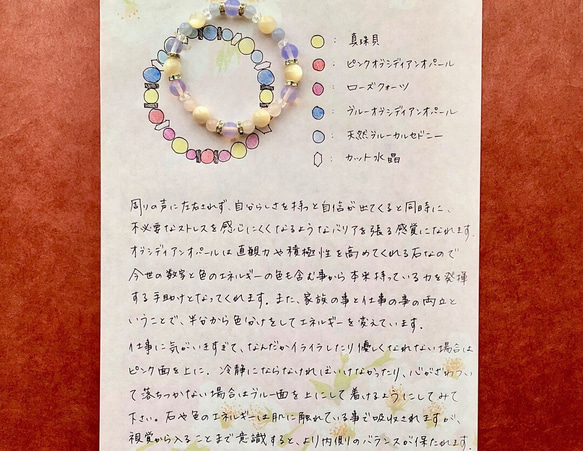 : 真珠貝
: ピンクオブシディアンオパール
: ローズクォーツ
: ブルーオブシディアンオパール
: 天然ブルーカルセドニー
: カット水晶
周りの声に左右されず、自分らしさを持つと自信が出てくると同時に、
不必要なストレスを感じにくくなるようなバリアを張る感覚になれます。
オブシディアンオパールは直観力や積極性を高めてくれる石なので
今世の数字と色のエネルギーの色も含む事から本来持っている力を発揮
する手助けとなってくれます。また、家族の事と仕事の事の両立と
いうことで、半分から色分けをしてエネルギーを変えています。
仕事に気がいきすぎて、なんだかイライラしたり優しくなれない場合は
ピンク面を上に、冷静にならなければいけなかったり、心がざわつい
て落ちつかない場合はブルー面を上にして着けるようにしてみて
下さい。石や色のエネルギーは肌に触れている事で吸収されますが、
視覚から入ることまで意識すると、より内側のバランスが保たれます。